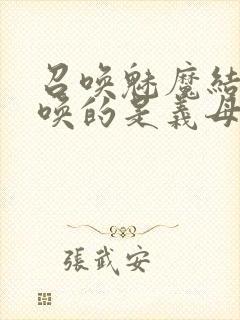 召唤魅魔結
唤的是義母
張武安